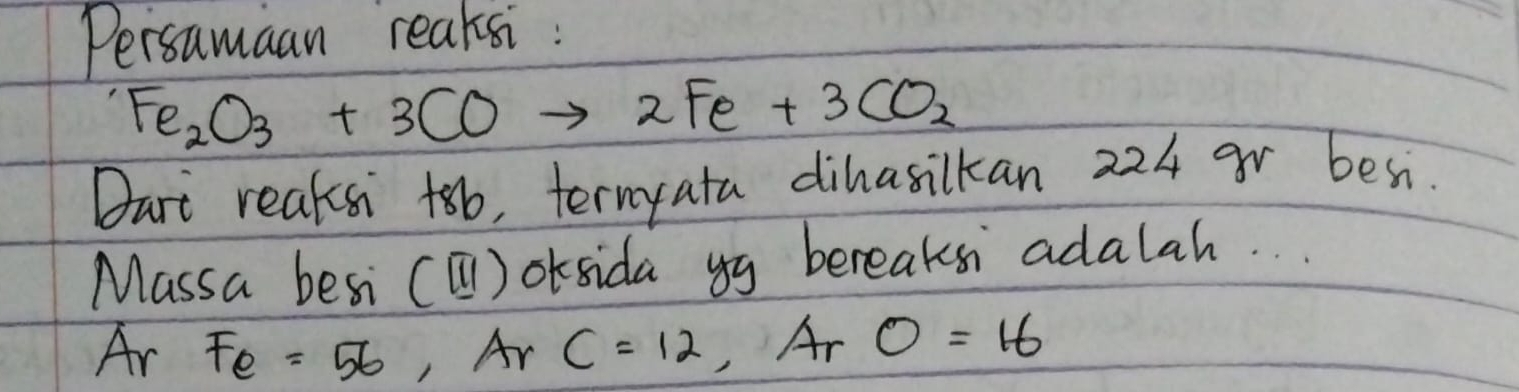 Persamaan reaksi :
Fe₂O₃ + 3CO → 2Fe + 3CO₂
Dari reaksi tsb, ternyata dihasilkan 224 gr besi.
Massa besi (III) oksida yg bereaksi adalah ...
Ar Fe = 56, Ar C = 12, Ar O = 16